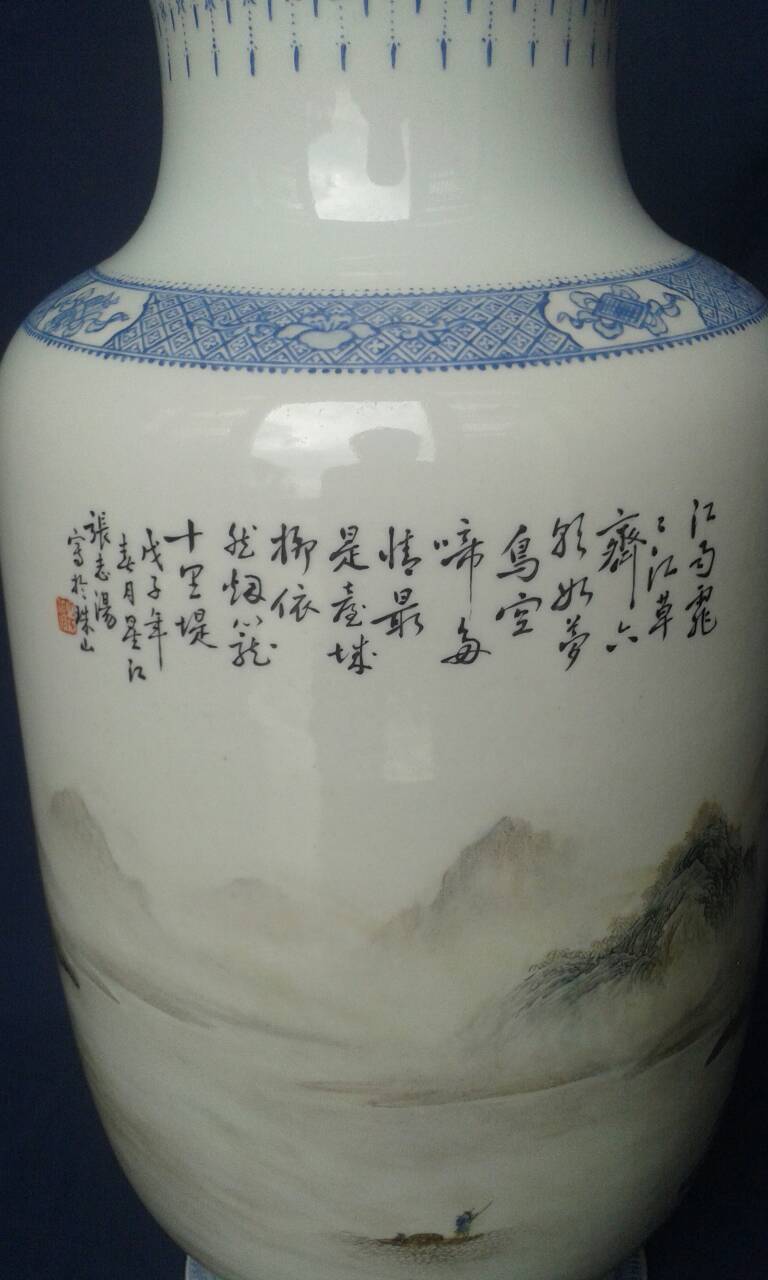 江雨霏
〻江草
齊六
朝如夢
鳥空
啼多
情最
是臺城
柳依
然烟籠
十里堤
戊子年
春月星江
張志湯
寫於珠山